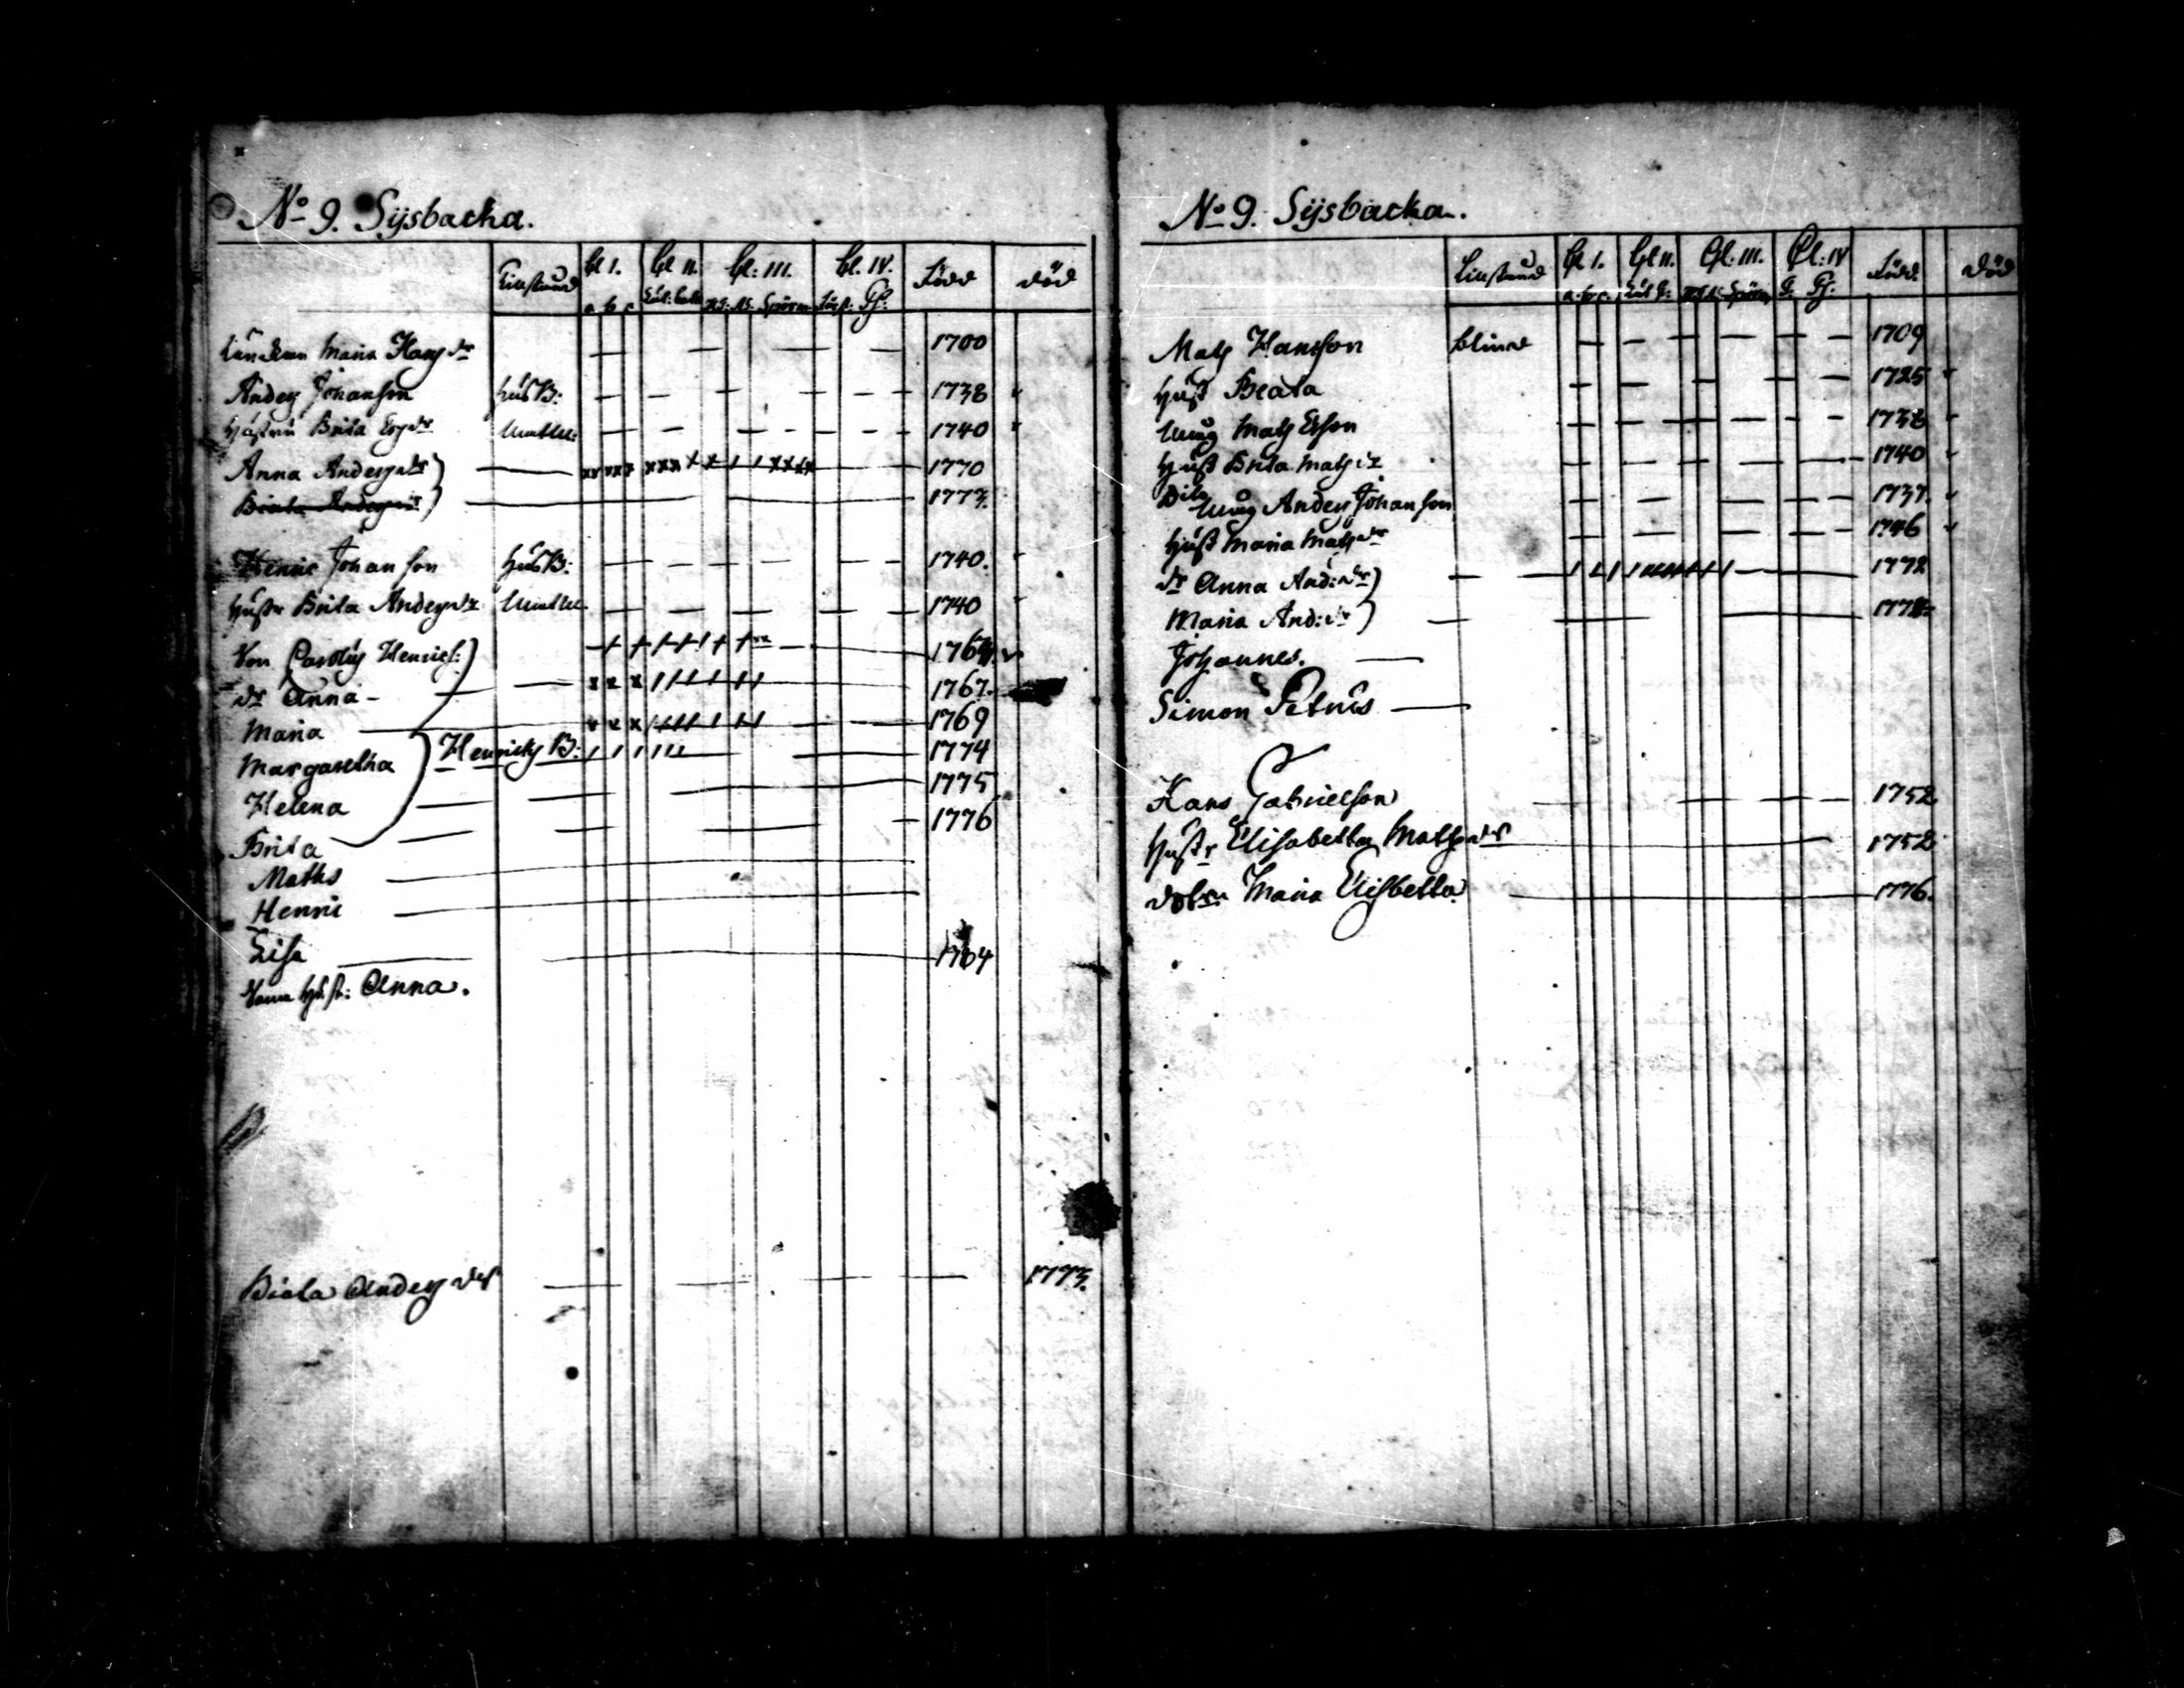 No 9. Sijsbacka.
Cl I. Cl II. Cl: III. Cl. IV. Född död
a b c
Maria Hansdr 1700
Anders Johanson husB: 1738
Hustru Brita Ersdr 1740
Anna Andersdr 1770
Beata Andersdr 1773.
Henric Johanson husB: 1740.
Hustr Brita Andersdr 1740
Son Carolus Henrics: 1764
dr Anna - 1767.
Maria 1769
Margaretha Henricks B: 1774
Helena 1775
Brita 1776
Maths
Henric
Lisa 1764
Hust: Anna.
Beata Andersdr 1773.
No 9. Sijsbacka.
Cl I. Cl II. Cl: III. Cl: IV Född död
a. b. c.
Mats Hansson blind 1709
Hust Beata 1725
Måg Mats Erson 1738
Hust Brita Matsdr 1740
Måg Anders Johanson 1737.
Hust Maria Matsdr 1746
dr Anna And:dr 1772
Maria And:dr
Johannes.
Simon Petrus
Hans Gabrielson 1752
Hustr Elisabetha Matsdr 1752
dotrn Maria Elisbetha 1776.